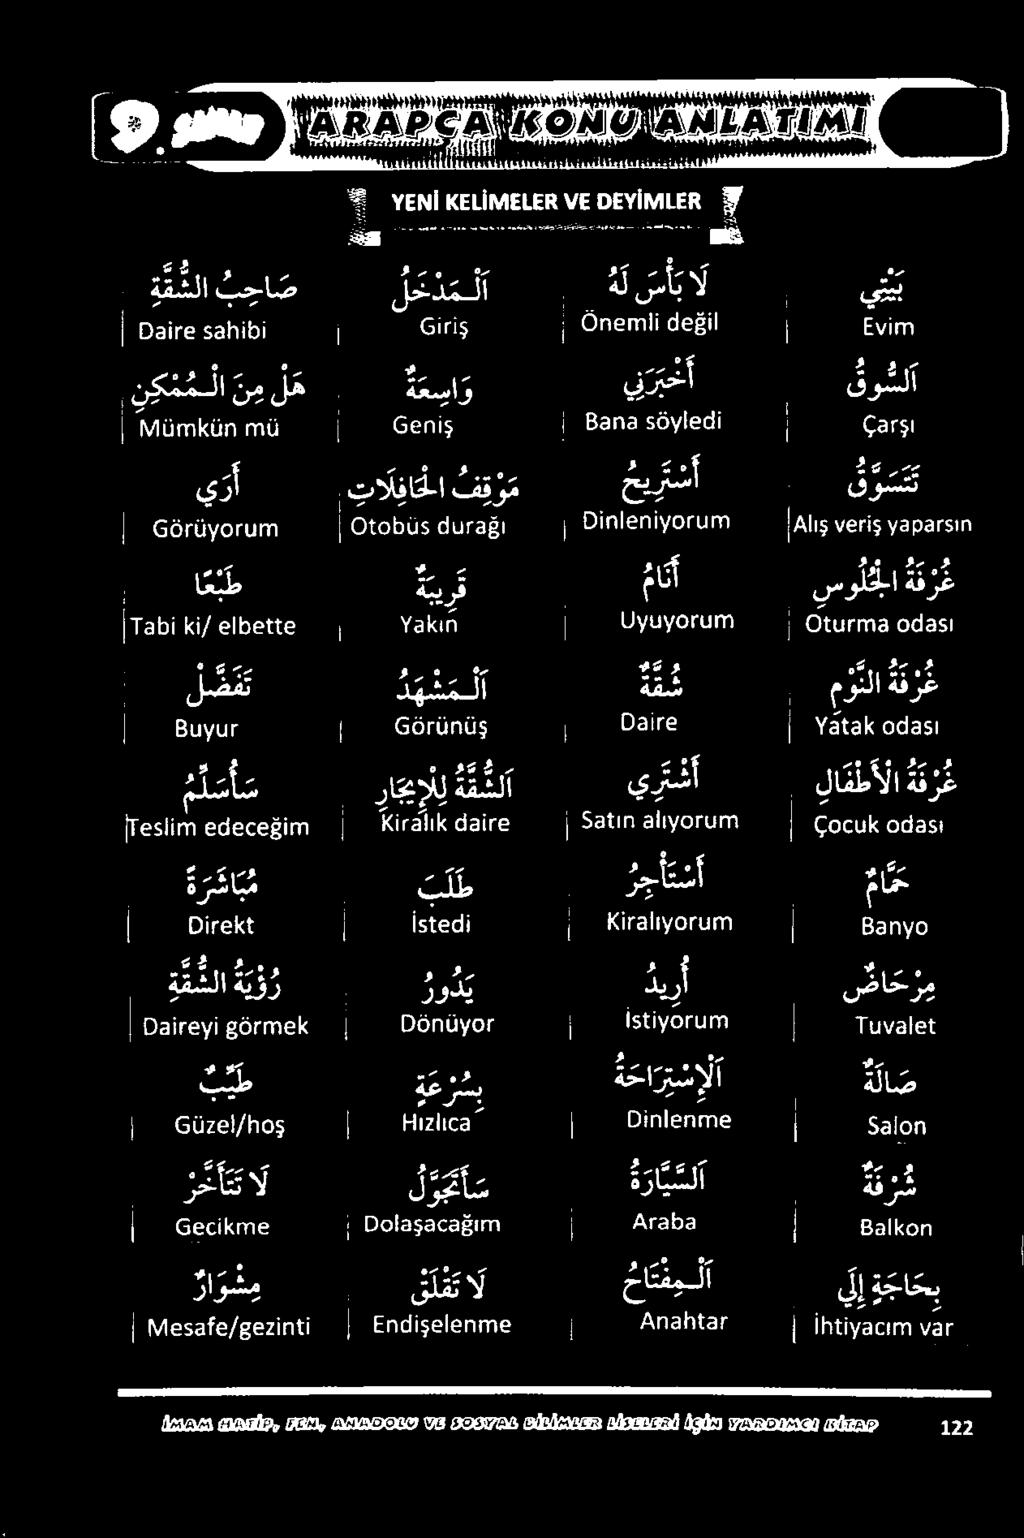 9. SINIF
ARAPÇA KONU ANLATIMI
YENİ KELİMELER VE DEYİMLER
صَاحِبُ الشُّقَّةِ | اَلْمَدْخَلُ | لَا بَأْسَ لَهُ | بَيْتِي
Daire sahibi | Giriş | Önemli değil | Evim
هَلْ مِنَ الْمُمْكِنِ | وَاسِعَةٌ | أَخْبَرَنِي | اَلسُّوقُ
Mümkün mü | Geniş | Bana söyledi | Çarşı
أَرَى | مَوْقِفُ الْحَافِلَاتِ | أَسْتَرِيحُ | تَتَسَوَّقُ
Görüyorum | Otobüs durağı | Dinleniyorum | Alış veriş yaparsın
طَبْعًا | قَرِيبَةٌ | أَنَامُ | غُرْفَةُ الْجُلُوسِ
Tabi ki/ elbette | Yakın | Uyuyorum | Oturma odası
تَفَضَّلْ | اَلْمَشْهَدُ | شُقَّةٌ | غُرْفَةُ النَّوْمِ
Buyur | Görünüş | Daire | Yatak odası
سَأُسَلِّمُ | اَلشُّقَّةُ لِلْإِيجَارِ | أَشْتَرِي | غُرْفَةُ الْأَطْفَالِ
Teslim edeceğim | Kiralık daire | Satın alıyorum | Çocuk odası
مُبَاشَرَةً | طَلَبَ | أَسْتَأْجِرُ | حَمَّامٌ
Direkt | İstedi | Kiralıyorum | Banyo
رُؤْيَةُ الشُّقَّةِ | يَدُورُ | أُرِيدُ | مِرْحَاضٌ
Daireyi görmek | Dönüyor | İstiyorum | Tuvalet
طَيِّبٌ | بِسُرْعَةٍ | اَلْإِسْتِرَاحَةُ | صَالَةٌ
Güzel/hoş | Hızlıca | Dinlenme | Salon
لَا تَتَأَخَّرْ | سَأَتَجَوَّلُ | اَلسَّيَّارَةُ | شُرْفَةٌ
Gecikme | Dolaşacağım | Araba | Balkon
مِشْوَارٌ | لَا تَقْلَقْ | اَلْمِفْتَاحُ | بِحَاجَةٍ إِلَى
Mesafe/gezinti | Endişelenme | Anahtar | İhtiyacım var
İMAM HATİP, FEN, ANADOLU VE SOSYAL BİLİMLER LİSELERİ İÇİN YARDIMCI KİTAP 122